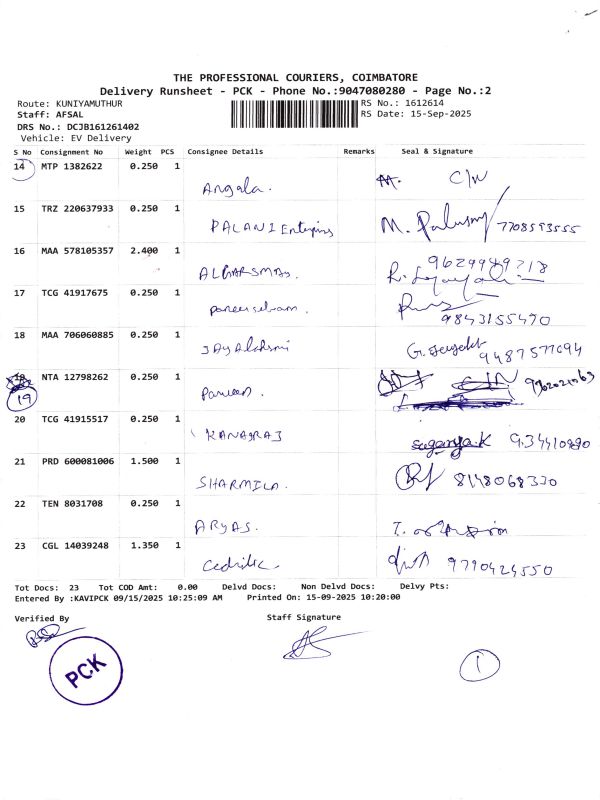 THE PROFESSIONAL COURIERS, COIMBATORE
Delivery Runsheet - PCK - Phone No.:9047080280 - Page No.:2
Route: KUNIYAMUTHUR
RS No.: 1612614
Staff: AFSAL
RS Date: 15-Sep-2025
DRS No.: DCJB161261402
Vehicle: EV Delivery
S No Consignment No Weight PCS Consignee Details Remarks Seal & Signature
14 MTP 1382622 0.250 1 Angala. C/N
15 TRZ 220637933 0.250 1 PALANI Enterprises M. 7708593555
16 MAA 578105357 2.400 1 9629989218
17 TCG 41917675 0.250 1 9843155470
18 MAA 706060885 0.250 1 JAYAlakshmi G. 9487577694
19 NTA 12798262 0.250 1 Parveen.
20 TCG 41915517 0.250 1 KANAGRAJ suganya.K
21 PRD 600081006 1.500 1 SHARMILA. 8148068330
22 TEN 8031708 0.250 1 ARYAS.
23 CGL 14039248 1.350 1 9790424550
Tot Docs: 23 Tot COD Amt: 0.00 Delvd Docs: Non Delvd Docs: Delvy Pts:
Entered By :KAVIPCK 09/15/2025 10:25:09 AM Printed On: 15-09-2025 10:20:00
Verified By Staff Signature
PCK
1